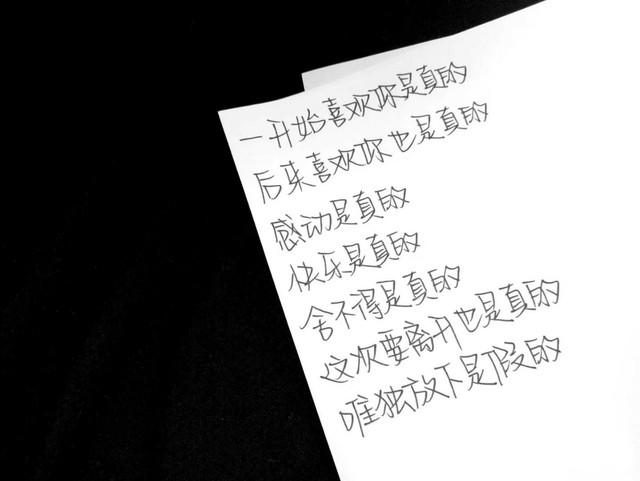 一开始喜欢你是真的
后来喜欢你也是真的
感动是真的
快乐是真的
舍不得是真的
这次要离开也是真的
唯独放下是假的